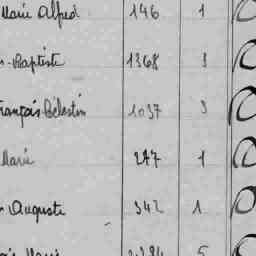 Marie Alfred 146 1
n-Baptiste 1368 3
rançois Célestin 1037 3
Marie 247 1
Auguste 342 1